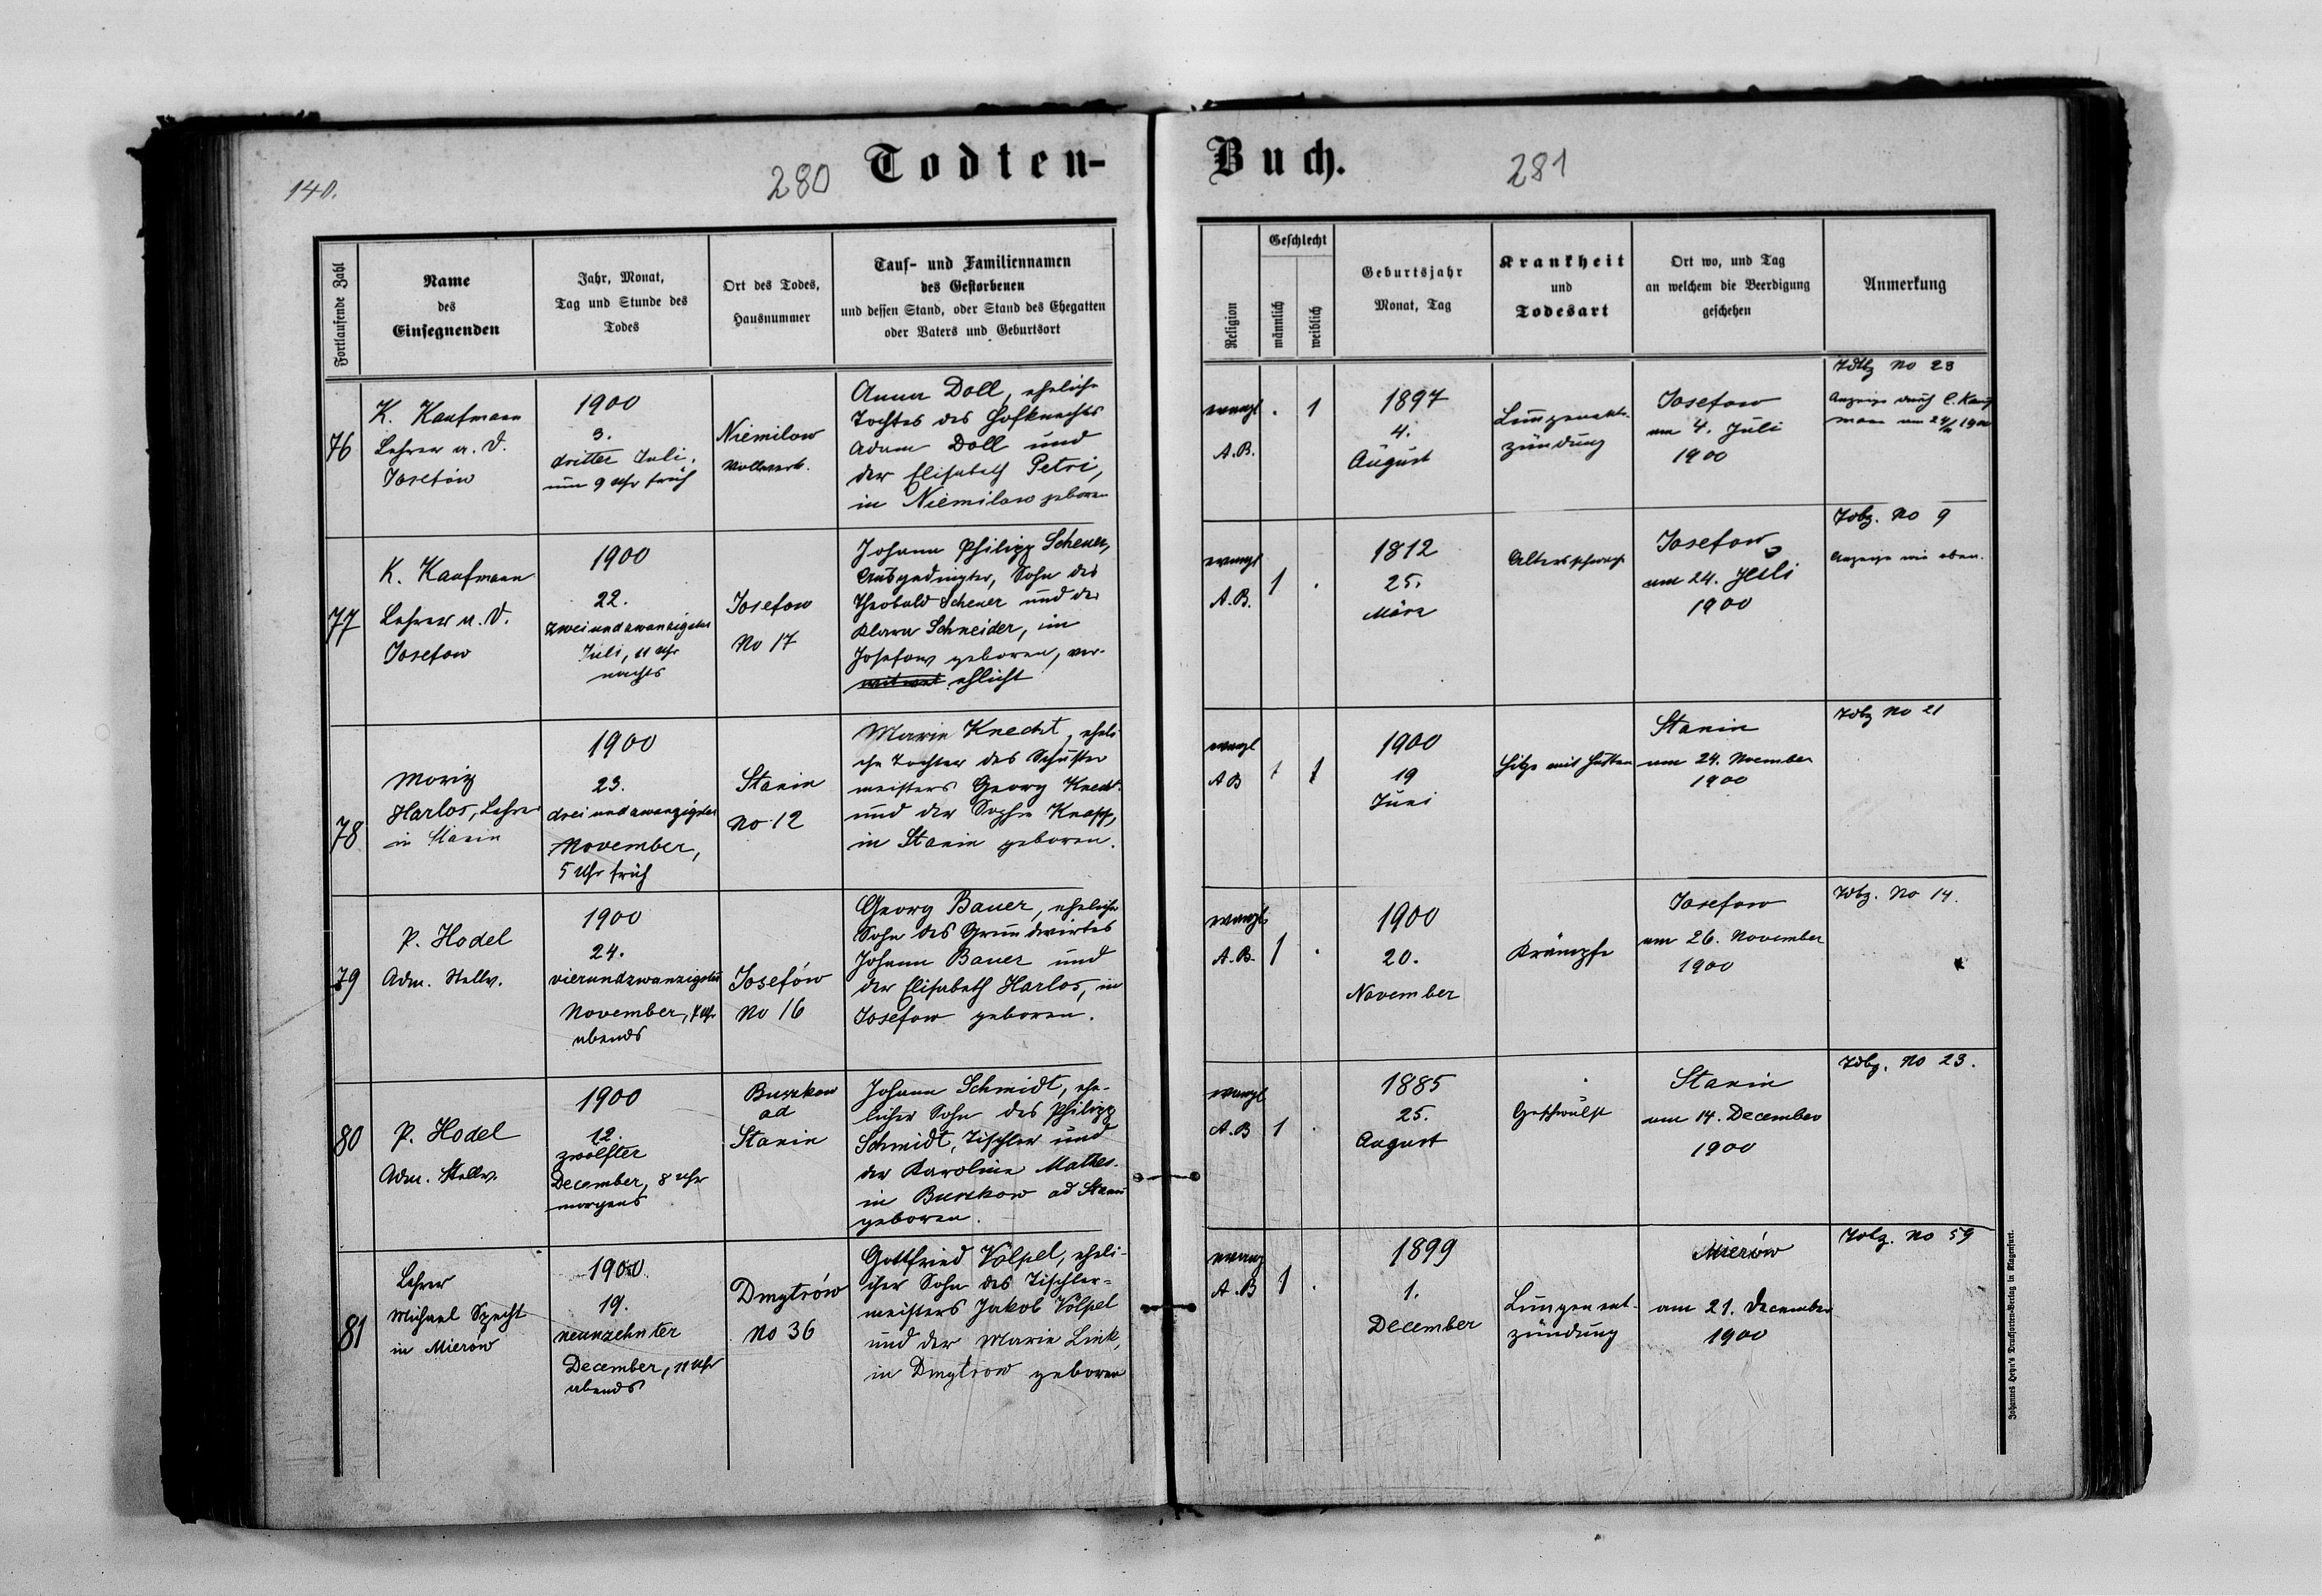 140.
280
Todten-
Fortlaufende Zahl
Name
des
Einsegnenden
Jahr, Monat,
Tag und Stunde des
Todes
Ort des Todes,
Hausnummer
Tauf- und Familiennamen
des Gestorbenen
und dessen Stand, oder Stand des Ehegatten
oder Vaters und Geburtsort
76
K. Kaufmann
Lehrer u. V.
Josefów
1900
3.
dritter Juli.
um 9 Uhr früh
Niemilow
Anna Doll, eheliche
Tochter des Hofknechts
Adam Doll und
der Elisabeth Petri,
in Niemilow geboren
77
K. Kaufmann
Lehrer u. V.
Josefow
1900
22.
zweiundzwanzigster
Juli, 11 Uhr
nachts
Josefow
No 17
Johann Philipp Scheuer,
Ausgedingter, Sohn des
Theobald Scheuer und der
Klara Schneider, in
Josefow geboren, ver-
witwet ehlicht
78
Moriz
Harlos, Lehrer
in Stanin
1900
23.
dreiundzwanzigster
November,
5 Uhr früh
Stanin
No 12
Marie Knecht, eheli
che Tochter des Schuster
meisters Georg Knecht
und der Sophie Knapp,
in Stanin geboren.
79
P. Hodel
Adm. Stellv.
1900
24.
vierundzwanzigster
November, Uhr
abends
Josefów
No 16
Georg Bauer, ehelicher
Sohn des Grundwirtes
Johann Bauer und
der Elisabeth Harlos, in
Josefow geboren.
80
P. Hodel
Adm. Stellv.
1900
12.
zwölfter
December, 8 Uhr
morgens
Buszkow
ad
Stanin
Johann Schmidt, ehe-
licher Sohn des Philipp
Schmidt, Tischler und
der Karoline Mathes.
in Buszkow ad Stanin
geboren.
81
Lehrer
Michael Specht
in Mierów
1900
19.
neunzehnter
December, 11 Uhr
abends
Dmytrów
No 36
Gottfried Völpel, eheli-
cher Sohn des Tischler-
meisters Jakob Völpel
und der Marie Link,
in Dmytrow geboren
Buch.
281
Religion
Geschlecht
männlich
weiblich
Geburtsjahr
Monat, Tag
Krankheit
und
Todesart
Ort wo, und Tag
an welchem die Beerdigung
geschehen
Anmerkung
evangl
A.B.
. 1
1897
4.
August
Lungenent-
zündung
Josefow
am 4. Juli
1900
No 23
Anzeige durch C. Kauf
mann am 1900
evangl
A.B.
1 .
1812
25.
März
Altersschwäche
Josefow
am 24. Juli
1900
Jdbg. No 9
Anzeige wie oben.
evangl
A B
1
1900
19
Juni
Hitze mit Husten
Stanin
am 24. November
1900
Jdbg No 21
evangl.
A.B.
1 .
1900
20.
November
Krämpfe
Josefow
am 26. November
1900
Jdbg. No 14.
evangl
A.B
1 .
1885
25.
August
Geschwulst
Stanin
am 14. December
1900
Jdbg. No 23.
evang
A.B
1 .
1899
1.
December
Lungenent-
zündung
Mierów
am 21. December
1900
Jdbg. No 59
Johannes Heyn's Drucksorten-Verlag in Klagenfurt.